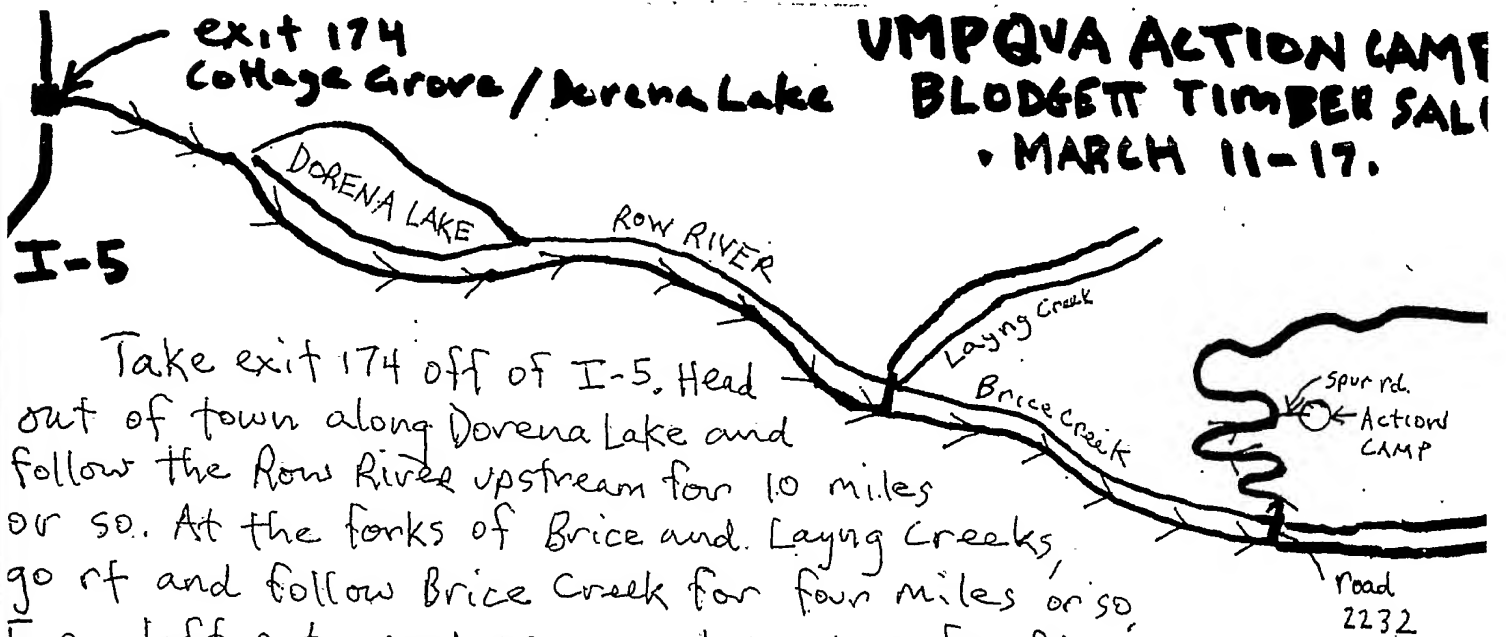 exit 174
Cottage Grove / Dorena Lake
UMPQUA ACTION CAMP
BLODGETT TIMBER SALE
• MARCH 11-17.
DORENA LAKE
I-5
ROW RIVER
Layng Creek
Brice Creek
Spur rd.
Action
CAMP
road
2232
Take exit 174 off of I-5. Head
out of town along Dorena Lake and
follow the Row River upstream for 10 miles
or so. At the forks of Brice and Layng Creeks,
go rt and follow Brice Creek for four miles or so,
left